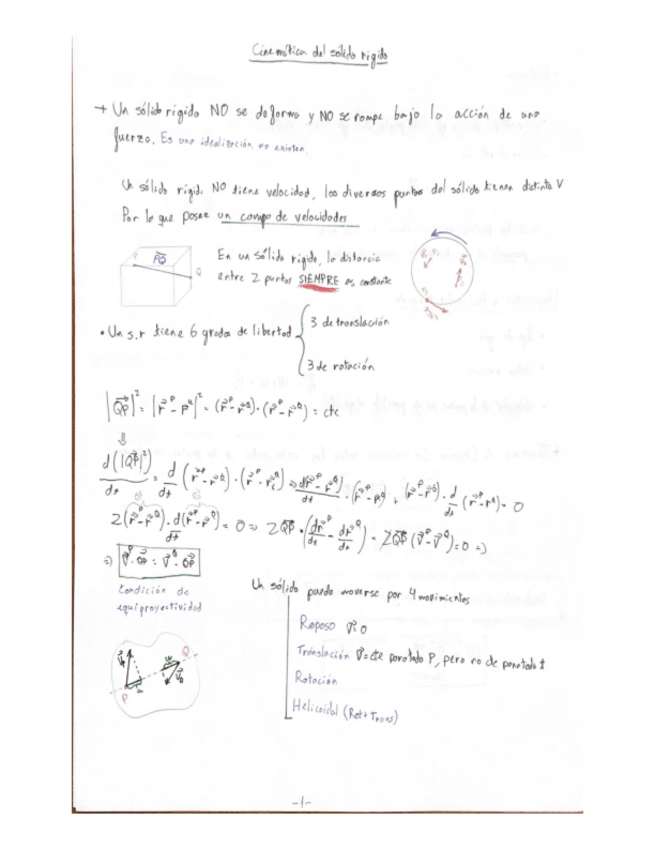 Cinemática del sólido rígido
→ Un sólido rígido NO se deforma y NO se rompe bajo la acción de una
fuerza. Es una idealización, no existen
Un sólido rígido NO tiene velocidad, los diversos puntos del sólido tienen distinta V
Por lo que posee un campo de velocidades
P PQ Q
En un sólido rígido, la distancia
entre 2 puntos SIEMPRE es constante
• Un s.r tiene 6 grados de libertad
3 de translación
3 de rotación
|QP|² = |r^P - r^Q|² = (r^P - r^Q)·(r^P - r^Q) = cte
⇓
d(|QP|²)/dt = d/dt (r^P - r^Q)·(r^P - r^Q) => d(r^P - r^Q)/dt · (r^P - r^Q) + (r^P - r^Q)· d/dt (r^P - r^Q) = 0
2(r^P - r^Q)· d/dt (r^P - r^Q) = 0 => 2QP · (dr^P/dt - dr^Q/dt) = 2QP (V^P - V^Q) = 0 =>
=> V^P · QP = V^Q · QP
Condición de
equiproyectividad
P Q
Un sólido puede moverse por 4 movimientos
Reposo V=0
Translación V=cte para todo P, pero no para todo t
Rotación
Helicoidal (Rot+Trans)
-1-